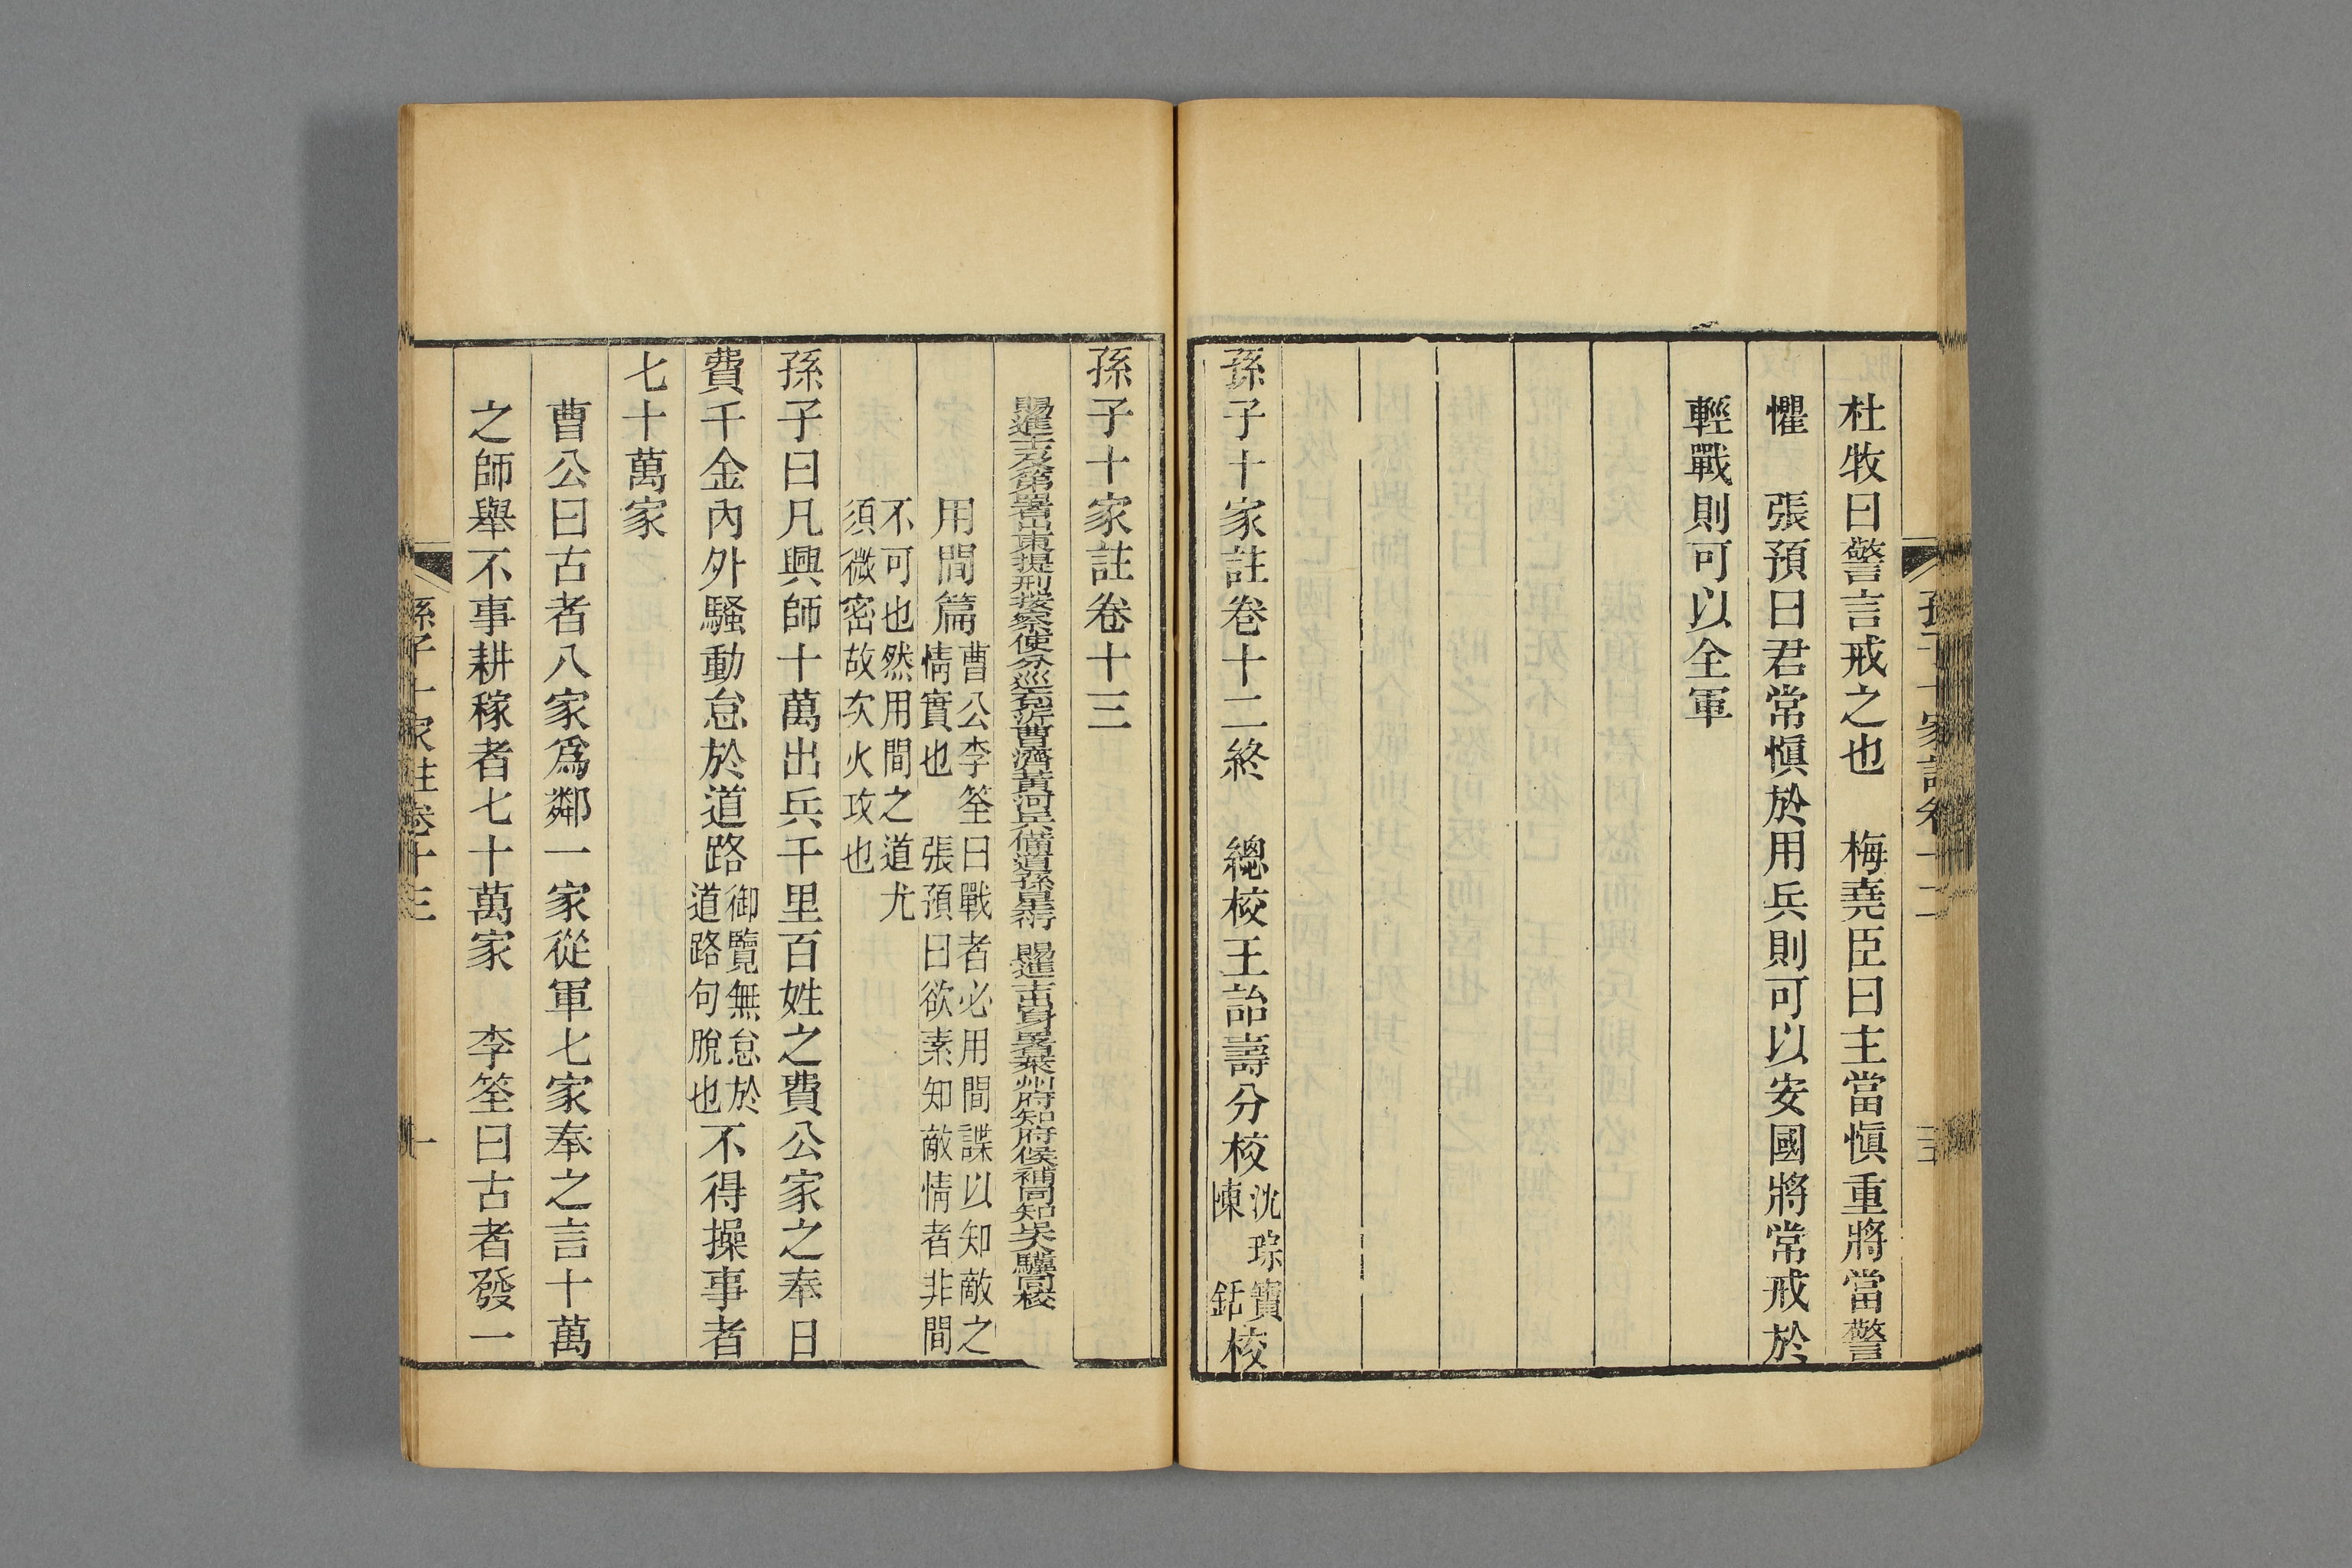 杜牧曰警言戒之也　梅堯臣曰主當愼重將當警
懼　張預曰君常愼於用兵則可以安國將常戒於
輕戰則可以全軍
孫子十家註卷十二終　總校王詒壽分校沈琮寶陳　銛校
孫子十家註卷十三
賜進士及第署山東提刑按察使分巡兗沂曹濟黃河兵備道孫星衍　賜進士出身署萊州府知府候補同知吳人驥同校
用間篇曹公李筌曰戰者必用間諜以知敵之
情實也　張預曰欲素知敵情者非間
不可也然用間之道尤
須微密故次火攻也
孫子曰凡興師十萬出兵千里百姓之費公家之奉日
費千金內外騷動怠於道路御覽無怠於道路句脫也不得操事者
七十萬家
曹公曰古者八家爲鄰一家從軍七家奉之言十萬
之師舉不事耕稼者七十萬家　李筌曰古者發一
孫子十家註卷十三
一